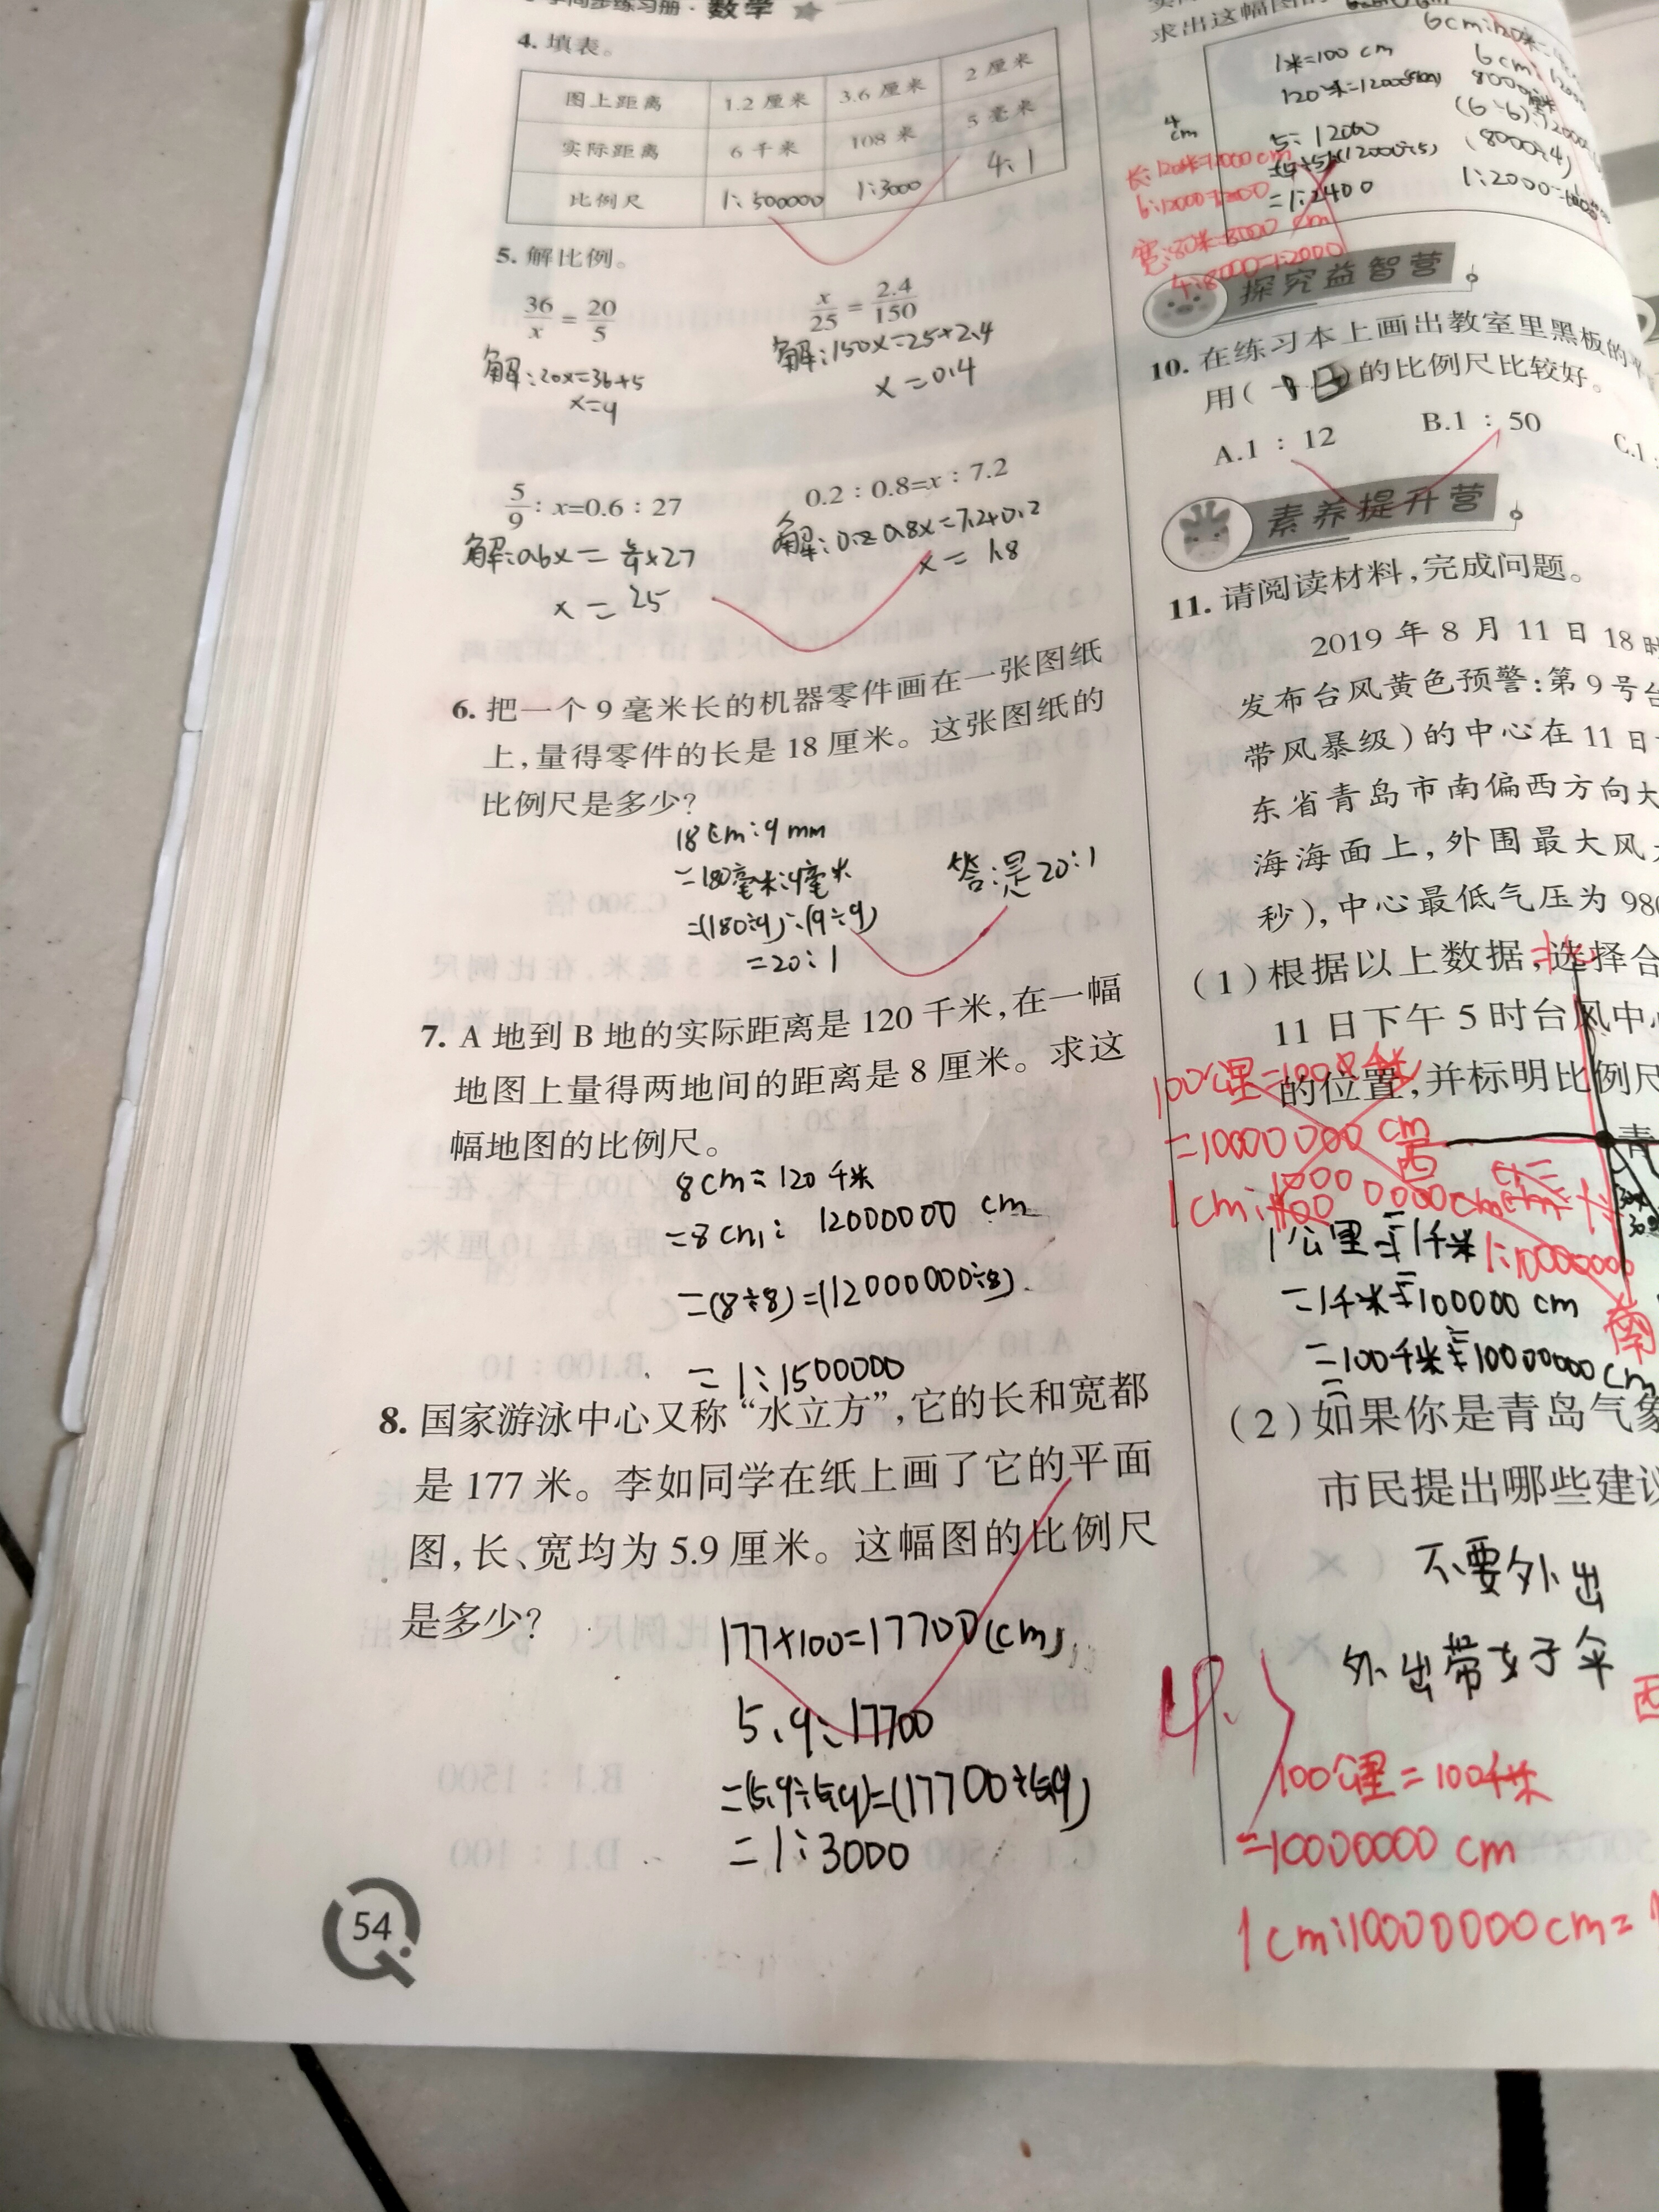 同步练习册·数学
4. 填表。
图上距离 1.2 厘米 3.6 厘米 2 厘米
实际距离 6 千米 108 米 5 毫米
比例尺 1:500000 1:3000 4:1
5. 解比例。
36/x = 20/5
x/25 = 2.4/150
解:20x=36×5
x=9
解:150x=25×2.4
x=0.4
5/9 : x=0.6 : 27
0.2 : 0.8=x : 7.2
解:0.6x=5/9×27
x=25
0.8x=7.2×0.2
x=1.8
6. 把一个 9 毫米长的机器零件画在一张图纸
上,量得零件的长是 18 厘米。这张图纸的
比例尺是多少?
18cm:9mm
=180毫米:9毫米
=(180÷9):(9÷9)
=20:1
答:是20:1
7. A 地到 B 地的实际距离是 120 千米,在一幅
地图上量得两地间的距离是 8 厘米。求这
幅地图的比例尺。
8cm=120千米
=8cm:12000000 cm
=(8÷8)=(12000000÷8)
=1:1500000
8. 国家游泳中心又称“水立方”,它的长和宽都
是 177 米。李如同学在纸上画了它的平面
图,长、宽均为 5.9 厘米。这幅图的比例尺
是多少?
177×100=17700(cm)
5.9:17700
=(5.9÷5.9)=(17700÷5.9)
=1:3000
54
求出这幅图的
1米=100 cm
4
cm
5:12000
=1:2400
长:120米=12000cm
6:12000=1:2000
宽:80米=8000 cm
4:8000=1:2000
探究益智营
10. 在练习本上画出教室里黑板的
用( B )的比例尺比较好。
A.1 : 12 B.1 : 50 C.1 :
素养提升营
11. 请阅读材料,完成问题。
2019 年 8 月 11 日 18 时
发布台风黄色预警:第 9 号台
带风暴级)的中心在 11 日
东省青岛市南偏西方向大
海海面上,外围最大风
秒),中心最低气压为 980
(1)根据以上数据,选择合
11 日下午 5 时台风中心
的位置,并标明比例尺
青
西
南
=10000000 cm
1公里=1千米
1:10000000
=1千米=100000 cm
=100千米=10000000 cm
(2)如果你是青岛气象
市民提出哪些建议
不要外出
外出带好伞
100公里=100千米
=10000000 cm
1cm:10000000cm=1